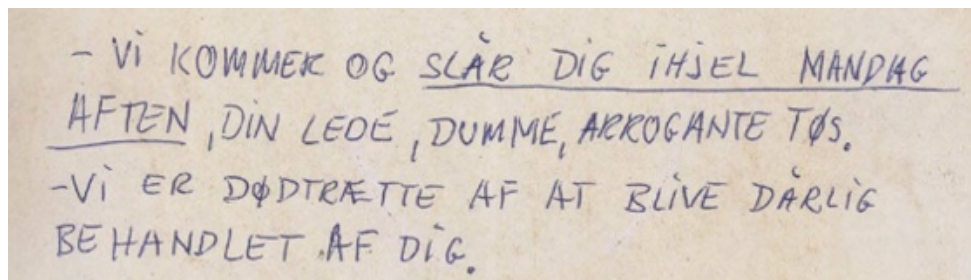 - Vi KOMMER OG SLÅR DiG iHJEL MANDAG
AFTEN, DiN LEDE, DUMME, ARROGANTE TØS.
-Vi ER DØDTRÆTTE AF AT BLiVE DÅRLiG
BEHANDLET AF DiG.